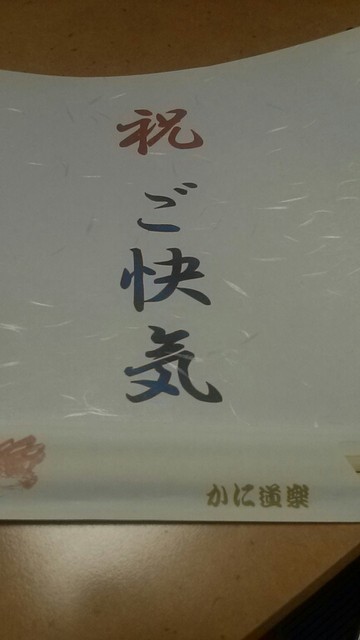 祝
ご快気
かに道楽